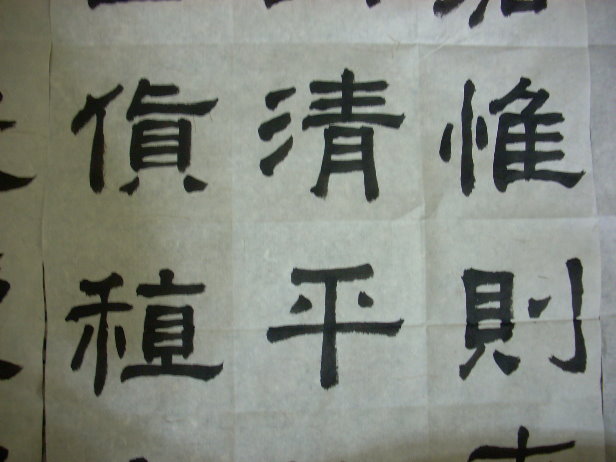 惟則
清平
貨稙